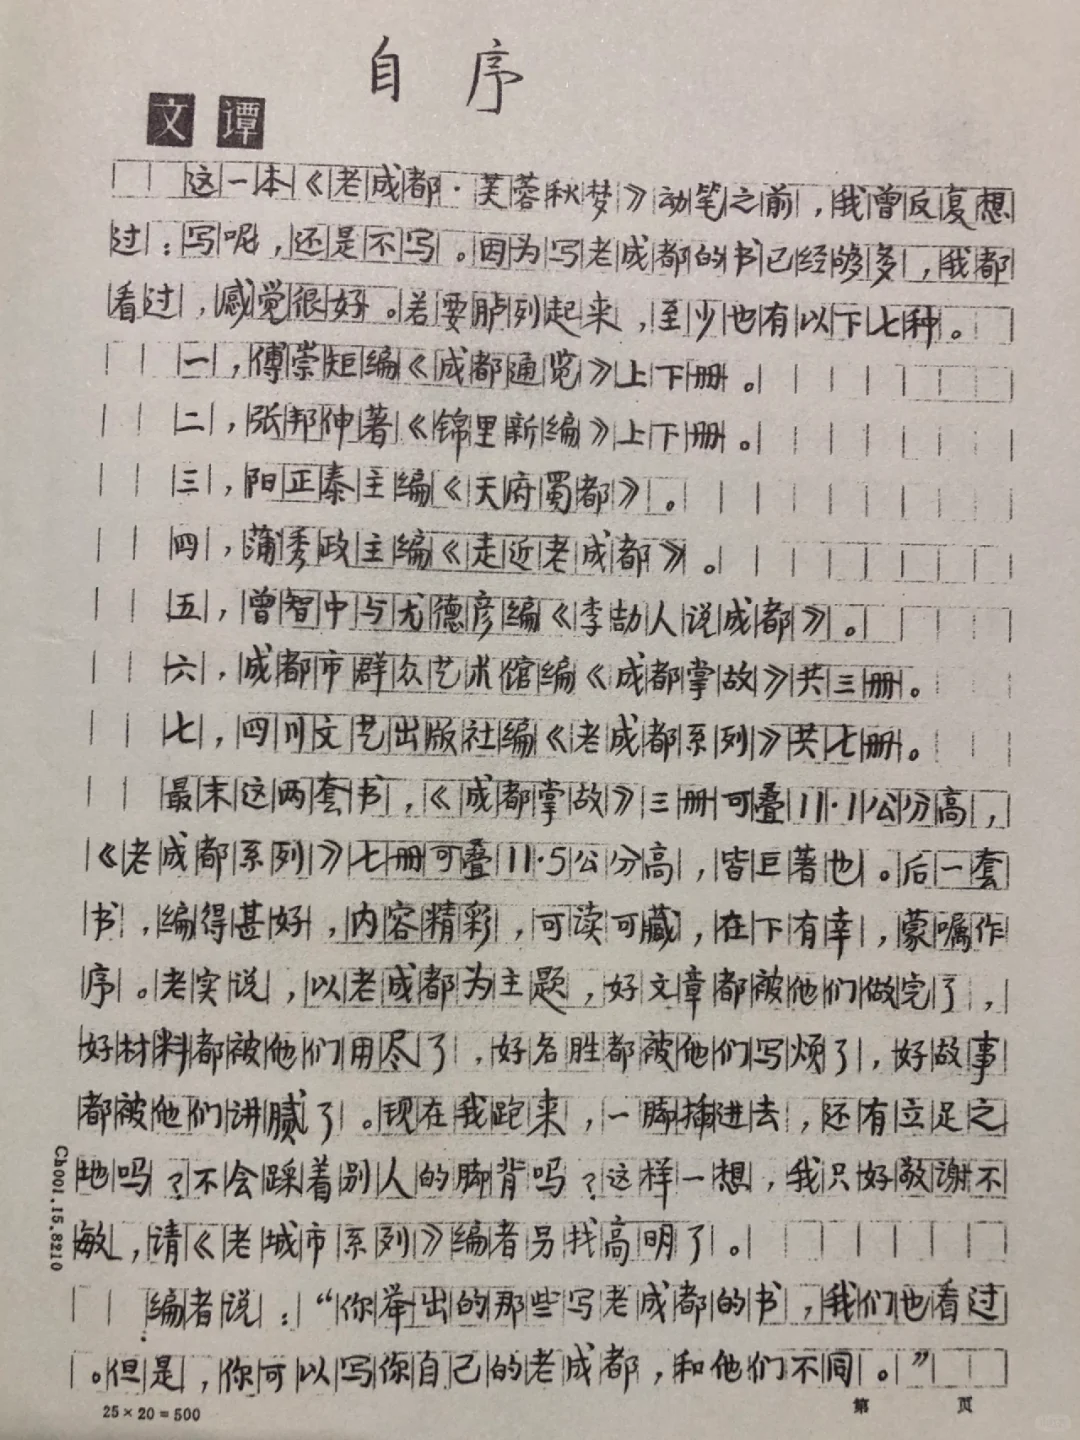 自序
文谭
这一本《老成都·芙蓉秋梦》动笔之前，我曾反复想
过：写呢，还是不写。因为写老成都的书已经够多，我都
看过，感觉很好。若要胪列起来，至少也有以下七种。
一，傅崇矩编《成都通览》上下册。
二，张邦伸著《锦里新编》上下册。
三，阳正泰主编《天府蜀都》。
四，蒲秀政主编《走近老成都》。
五，曾智中与尤德彦编《李劼人说成都》。
六，成都市群众艺术馆编《成都掌故》共三册。
七，四川文艺出版社编《老成都系列》共七册。
最末这两套书，《成都掌故》三册可叠11·1公分高，
《老成都系列》七册可叠11·5公分高，皆巨著也。后一套
书，编得甚好，内容精彩，可读可藏，在下有幸，蒙嘱作
序。老实说，以老成都为主题，好文章都被他们做完了，
好材料都被他们用尽了，好名胜都被他们写烦了，好故事
都被他们讲腻了。现在我跑来，一脚插进去，还有立足之
地吗？不会踩着别人的脚背吗？这样一想，我只好敬谢不
敏，请《老城市系列》编者另找高明了。
编者说：“你举出的那些写老成都的书，我们也看过
。但是，你可以写你自己的老成都，和他们不同。”
25×20=500
第 页
Cb001.15.8210